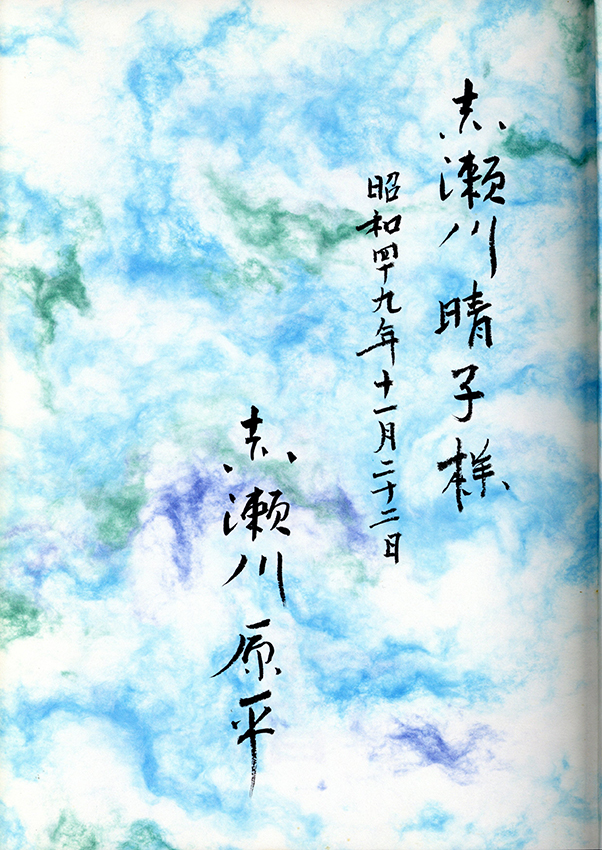 赤瀬川晴子様
昭和四十九年十一月二十二日
赤瀬川原平